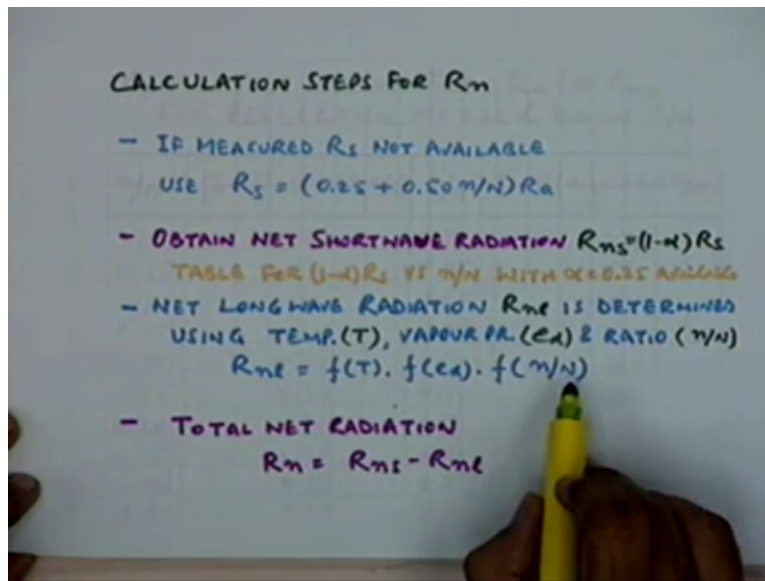 CALCULATION STEPS FOR Rn
- IF MEASURED Rs NOT AVAILABLE
USE Rs = (0.25 + 0.50 n/N) Ra
- OBTAIN NET SHORTWAVE RADIATION Rns = (1-α) Rs
TABLE FOR (1-α)Rs VS n/N WITH α = 0.25 AVAILABLE
- NET LONGWAVE RADIATION Rnl IS DETERMINED
USING TEMP. (T), VAPOUR PR. (ed) & RATIO (n/N)
Rnl = f(T). f(ed). f(n/N)
- TOTAL NET RADIATION
Rn = Rns - Rnl